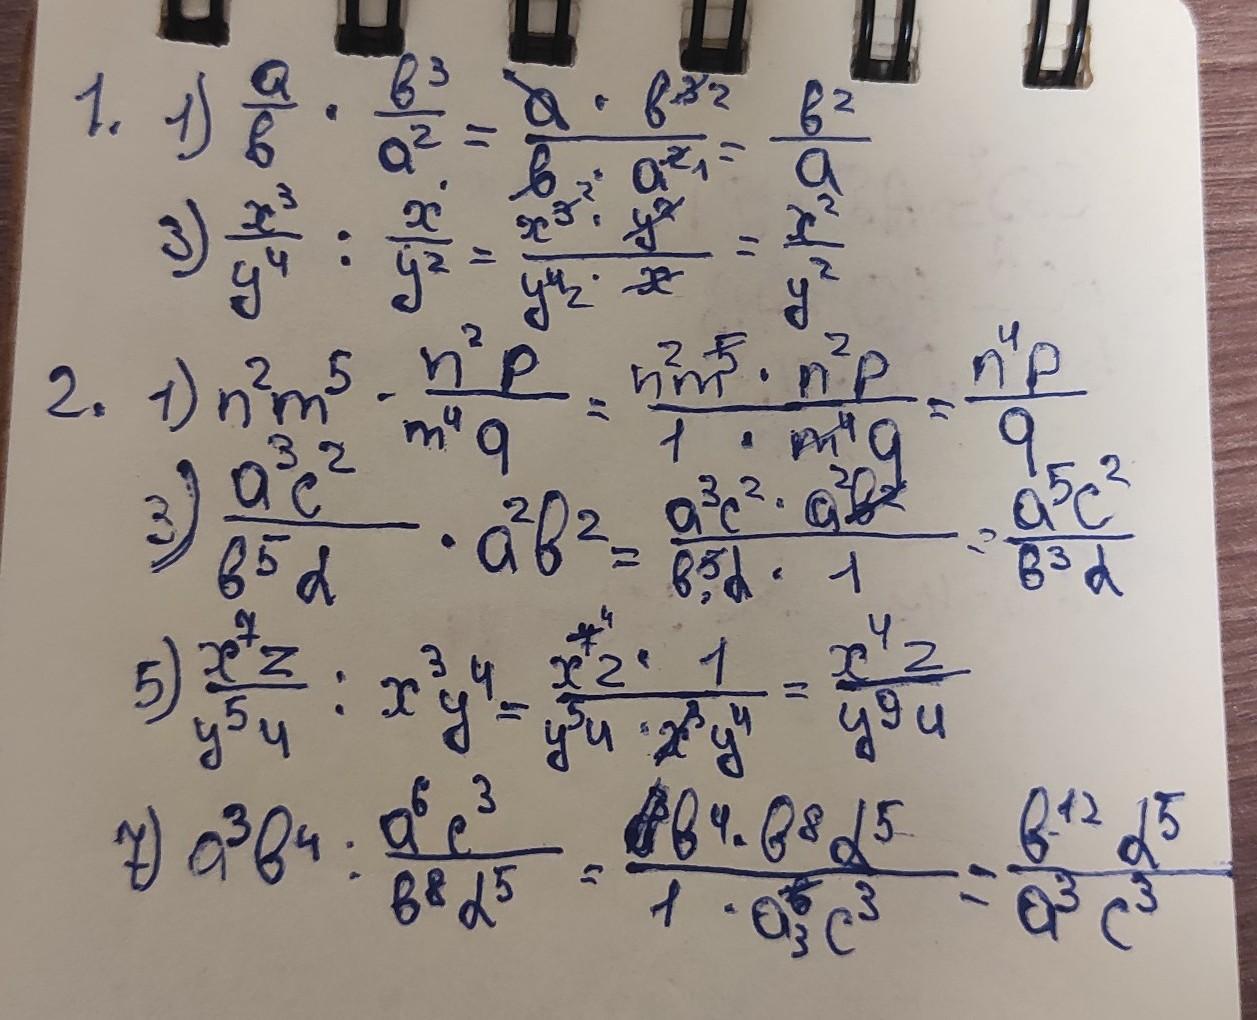 1. 1) a/в · в³/a² = a · в³ ² / в · a² ¹ = в²/a
3) x³/y⁴ : x/y² = x³ ² · y² / y⁴ ² · x = x²/y²
2. 1) n²m⁵ · n²p/m⁴q = n²m⁵ · n²p / 1 · m⁴q = n⁴p/q
3) a³c²/в⁵d · a²в² = a³c² · a²в² / в⁵ ³d · 1 = a⁵c²/в³d
5) x⁷z/y⁵u : x³y⁴ = x⁷ ⁴z · 1 / y⁵u · x³y⁴ = x⁴z/y⁹u
7) a³в⁴ : a⁶c³/в⁸d⁵ = a³в⁴ · в⁸d⁵ / 1 · a⁶ ₃c³ = в¹²d⁵/a³c³